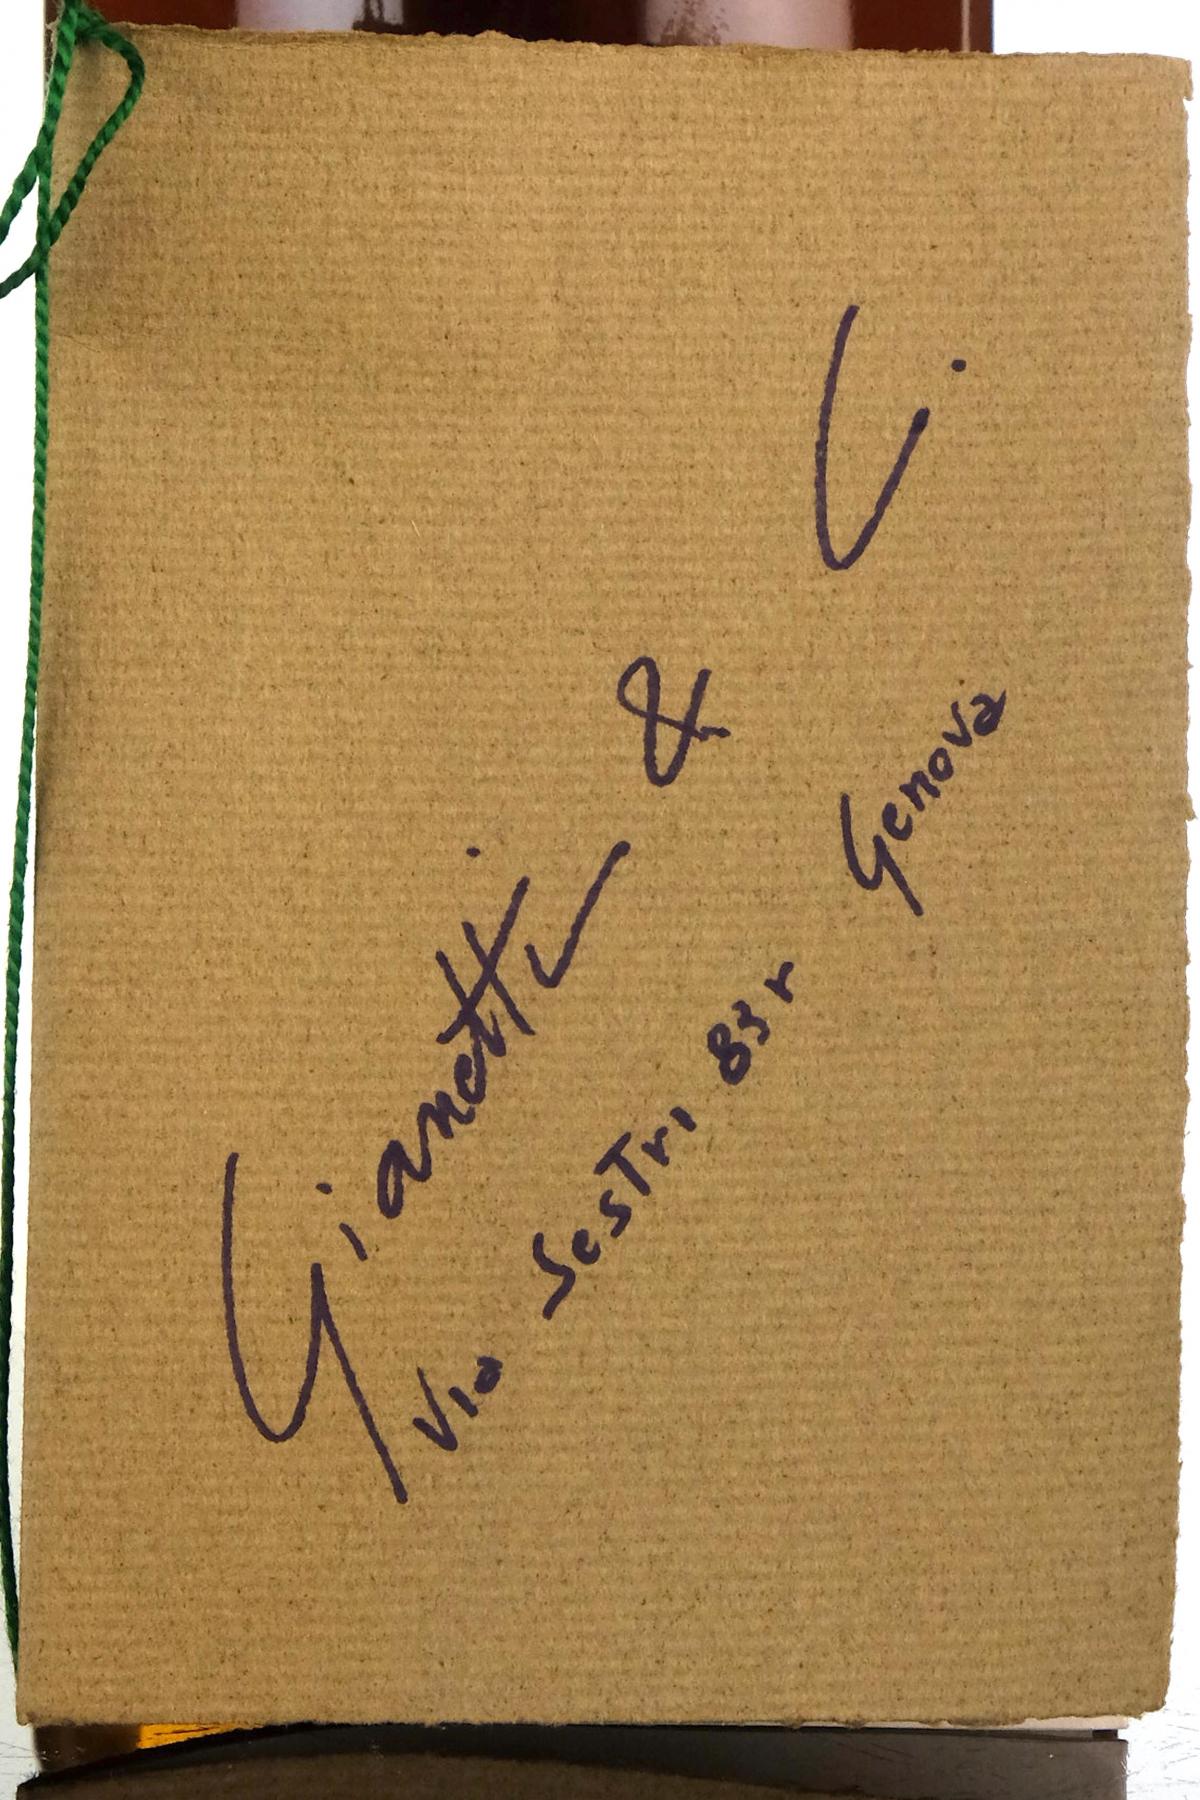 Gianetti & C.
Via Sestri 83 r Genova